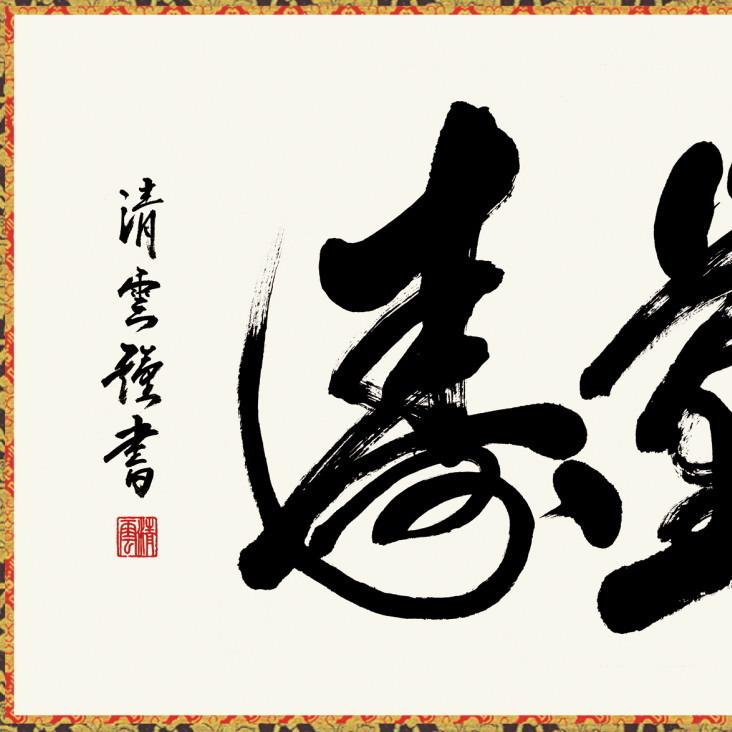 寿
清雲謹書
清雲